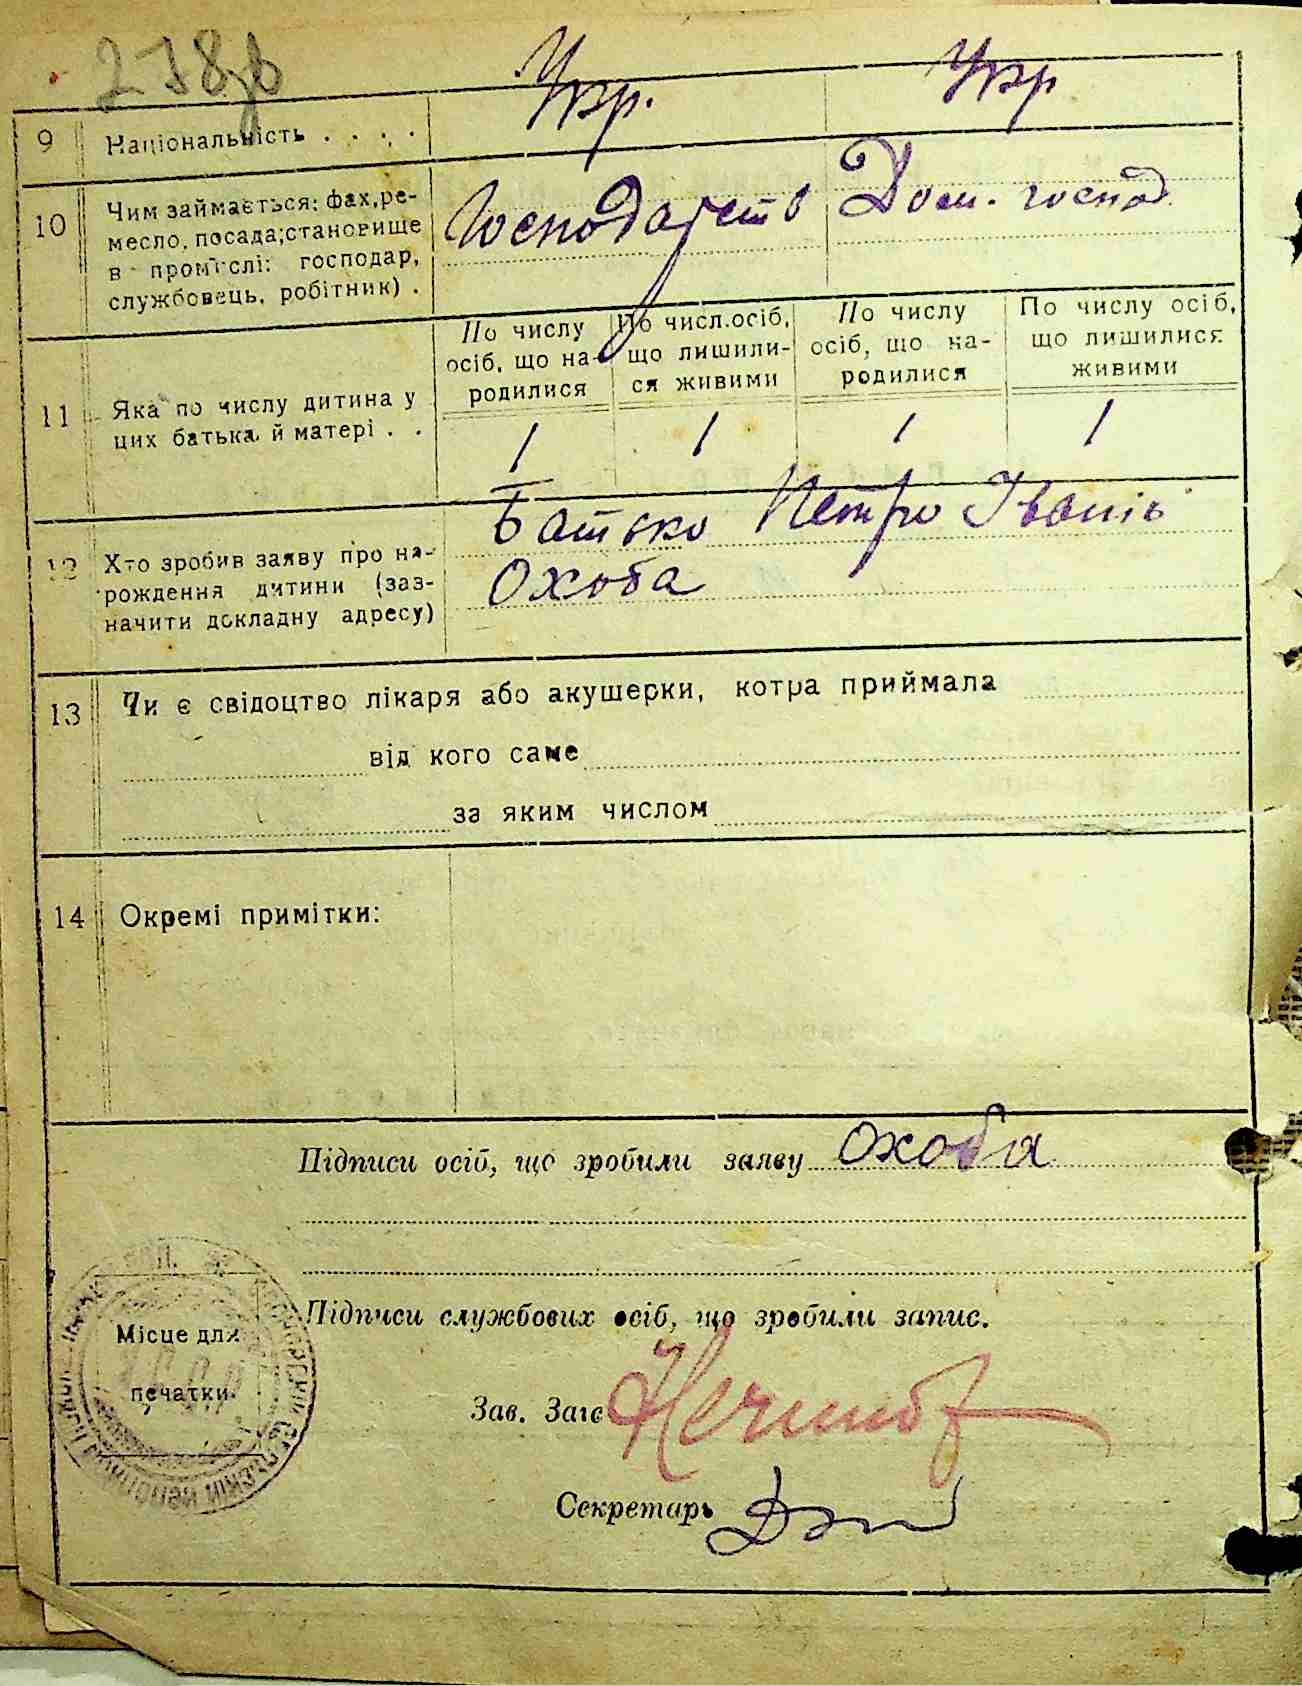 278зв
Укр. Укр
9 Національність . . . .
10 Чим займається: фах, ре-
месло, посада; становище
в промислі: господар,
службовець, робітник) .
Господарств Дом. господ.
По числу осіб, що на-родилися По числ. осіб, що лишили-ся живими По числу осіб, що на-родилися По числу осіб, що лишилися живими
11 Яка по числу дитина у
цих батька й матері . .
1 1 1 1
12 Хто зробив заяву про на-
рождення дитини (заз-
начити докладну адресу)
Батько Петро Іванів
Охоба
13 Чи є свідоцтво лікаря або акушерки, котра приймала
від кого саме
за яким числом
14 Окремі примітки:
Підписи осіб, що зробили заяву Охоба
Підписи службових осіб, що зробили запис.
Місце для
печатки.
Зав. Загс
Секретарь